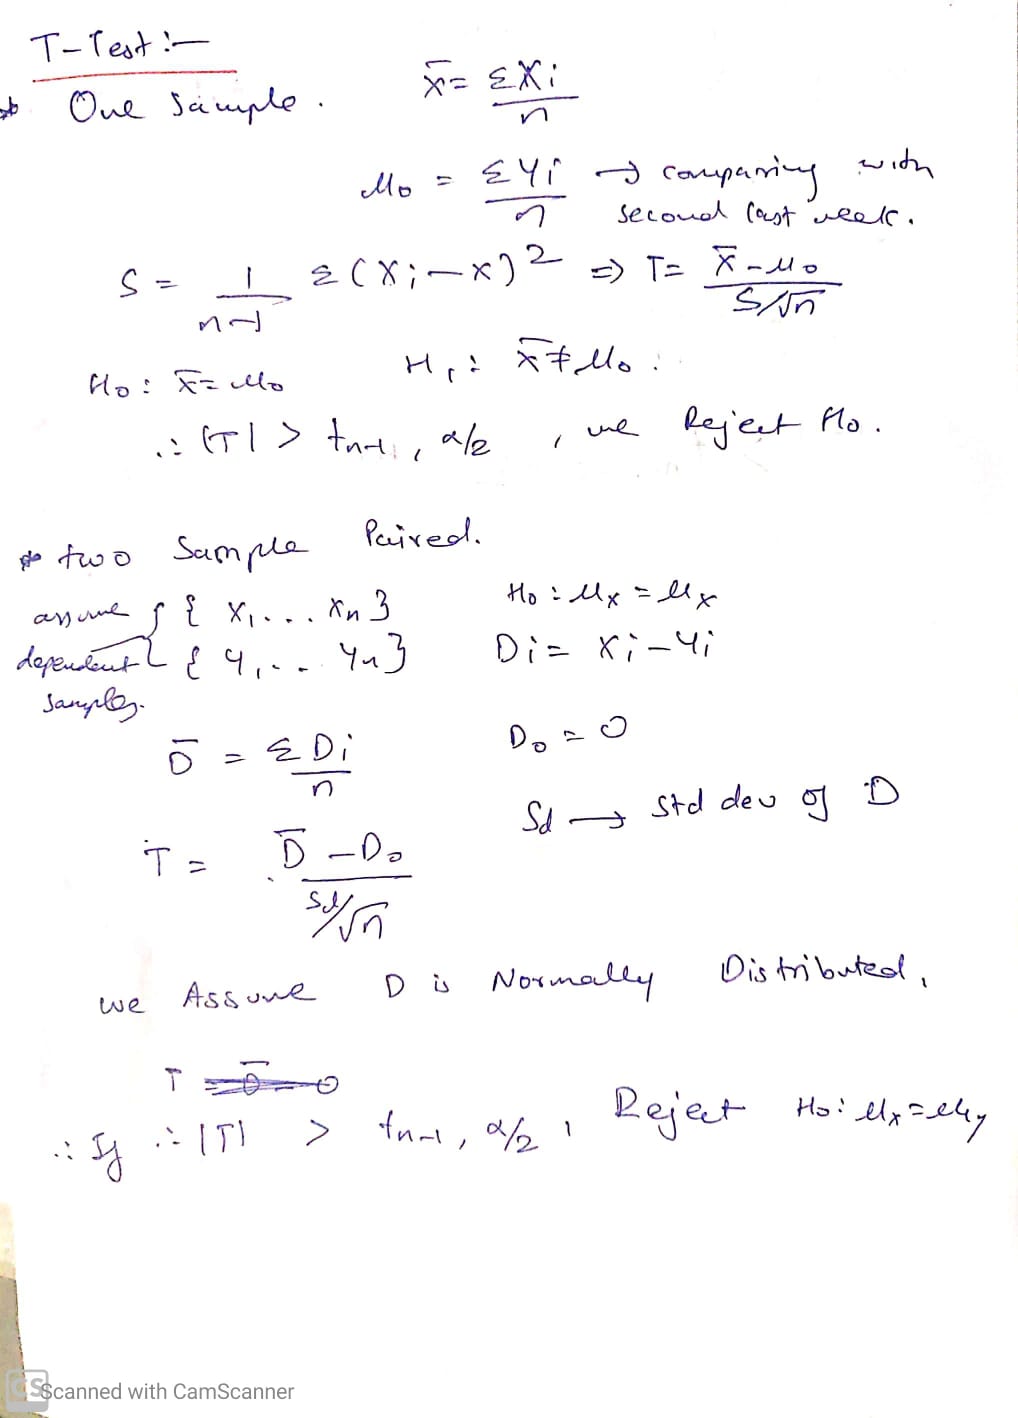 T-Test :-
* One Sample. x̄ = ΣXi / n
μo = ΣYi / n → comparing with
second last week.
S = 1/(n-1) Σ(Xi-x)² ⇒ T = (x̄-μo) / (S/√n)
Ho: x̄ = μo H1: x̄ ≠ μo.
∴ |T| > tn-1, α/2 , we Reject Ho.
* two Sample Paired.
assume { { X1... Xn} Ho: μx = μx
dependent { Y1... Yn} Di = Xi-Yi
samples.
D̄ = ΣDi / n Do = 0
Sd → std dev of D
T = (D̄ - Do) / (Sd/√n)
we Assume D is Normally Distributed,
T
∴ If ∴ |T| > tn-1, α/2, Reject Ho: μx = μy
CS Scanned with CamScanner